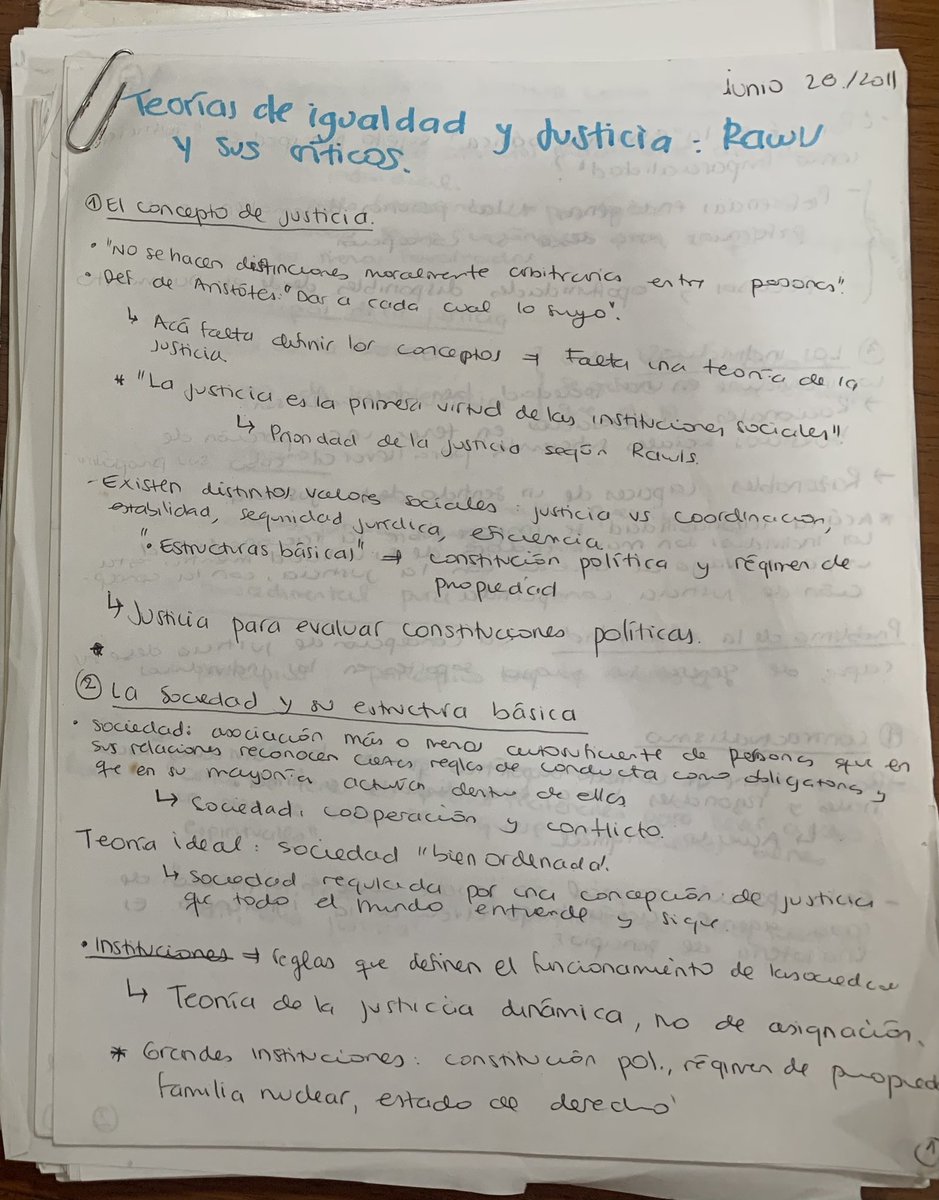 junio 28/2011
Teorías de igualdad y Justicia: Rawls
y sus críticos.
① El concepto de justicia.
• "No se hacen distinciones moralmente arbitrarias entre personas".
• Def. de Aristótes: "Dar a cada cual lo suyo".
↳ Acá falta definir los conceptos → Falta una teoría de la
justicia
* "La justicia es la primera virtud de las instituciones sociales".
↳ Prioridad de la justicia según Rawls.
- Existen distintos valores sociales: justicia vs coordinación,
estabilidad, seguridad jurídica, eficiencia.
"• Estructuras básicas" → constitución política y régimen de
propiedad
↳ Justicia para evaluar constituciones políticas.
*
② La Sociedad y su estructura básica
• Sociedad: asociación más o menos autosuficiente de personas que en
sus relaciones reconocen ciertas reglas de conducta como obligatorias y
qe en su mayoría actúan dentro de ellas
↳ Sociedad: cooperación y conflicto.
Teoría ideal: sociedad "bien ordenada".
↳ Sociedad regulada por una concepción de justicia
qe todo el mundo entiende y sigue.
• Instituciones → reglas que definen el funcionamiento de la sociedad
↳ Teoría de la justicia dinámica, no de asignación.
* Grandes instituciones: constitución pol., régimen de propied
familia nuclear, estado de derecho
1